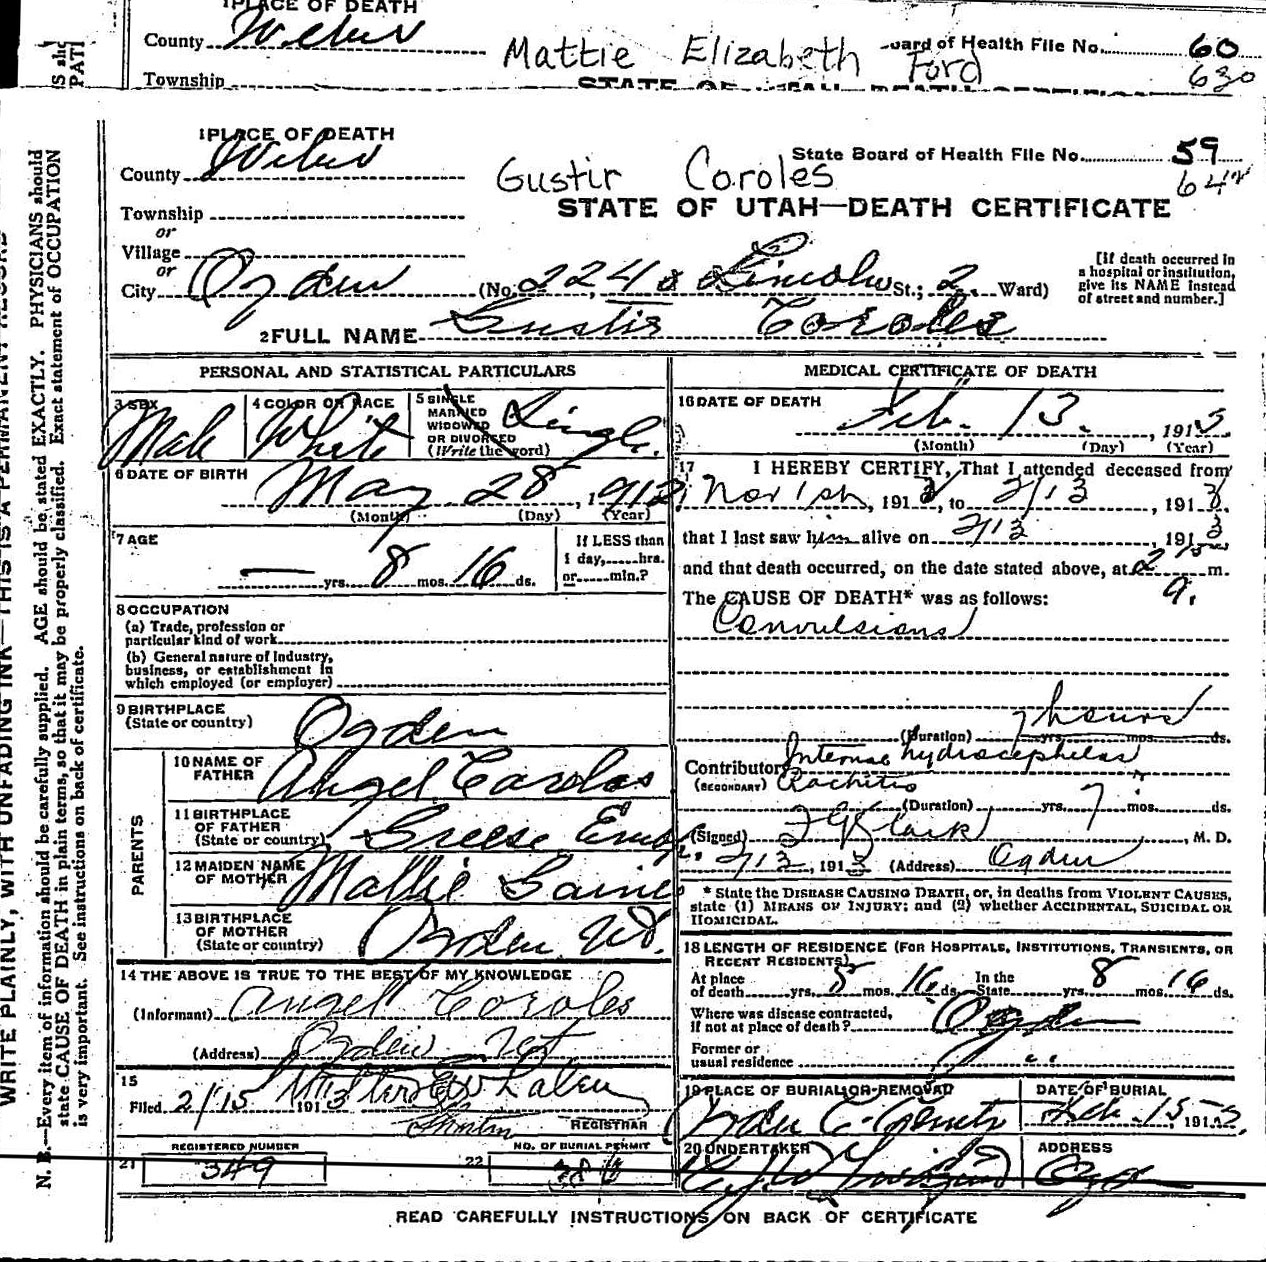 1PLACE OF DEATH
County Weber
Mattie Elizabeth Ford
oard of Health File No. 60
630
Township
1PLACE OF DEATH
County Weber
Gustir Coroles
State Board of Health File No. 59
STATE OF UTAH—DEATH CERTIFICATE
Township
or
Village
or
City Ogden (No. 2240 Lincoln St.; 2. Ward)
[If death occurred in
a hospital or institution,
give its NAME instead
of street and number.]
2FULL NAME Gustir Coroles
PERSONAL AND STATISTICAL PARTICULARS
3 SEX
Male
4 COLOR OR RACE
White
5 SINGLE
MARRIED
WIDOWED
OR DIVORCED
(Write the word)
Single.
6 DATE OF BIRTH
May 28, 1912
(Month) (Day) (Year)
7 AGE
— yrs. 8 mos. 16 ds.
If LESS than
1 day,......hrs.
or......min.?
8 OCCUPATION
(a) Trade, profession or
particular kind of work
(b) General nature of industry,
business, or establishment in
which employed (or employer)
9 BIRTHPLACE
(State or country)
Ogden
PARENTS
10 NAME OF
FATHER
Angel Caroles
11 BIRTHPLACE
OF FATHER
(State or country)
Greese
12 MAIDEN NAME
OF MOTHER
Mattie
13 BIRTHPLACE
OF MOTHER
(State or country)
Ogden Ut.
14 THE ABOVE IS TRUE TO THE BEST OF MY KNOWLEDGE
(Informant) Angel Coroles
(Address) Ogden Ut
15
Filed 2/15 1913
REGISTRAR
REGISTERED NUMBER
21 349
NO. OF BURIAL PERMIT
22
MEDICAL CERTIFICATE OF DEATH
16 DATE OF DEATH
Feb. 13., 1913
(Month) (Day) (Year)
17 I HEREBY CERTIFY, That I attended deceased from
Nov 1st, 1912, to 2/13, 1913.
that I last saw him alive on 2/13, 1913
and that death occurred, on the date stated above, at 2 15 m.
a.
The CAUSE OF DEATH* was as follows:
Convulsions
7 hours
(Duration) yrs. mos. ds.
Contributor Internal hydrocephelas
(SECONDARY) Rachitis
(Duration) yrs. 7 mos. ds.
(Signed) Clark, M. D.
2/13, 1913 (Address) Ogden
* State the DISEASE CAUSING DEATH, or, in deaths from VIOLENT CAUSES,
state (1) MEANS OF INJURY; and (2) whether ACCIDENTAL, SUICIDAL OR
HOMICIDAL.
18 LENGTH OF RESIDENCE (FOR HOSPITALS, INSTITUTIONS, TRANSIENTS, OR
RECENT RESIDENTS)
At place
of death yrs. 8 mos. 16 ds.
In the
State yrs. 8 mos. 16 ds.
Where was disease contracted,
if not at place of death? Ogden
Former or
usual residence
19 PLACE OF BURIAL OR REMOVAL
DATE OF BURIAL
Feb. 15, 1913.
20 UNDERTAKER
ADDRESS
Ogden
READ CAREFULLY INSTRUCTIONS ON BACK OF CERTIFICATE
WRITE PLAINLY, WITH UNFADING INK—THIS IS A PERMANENT RECORD
N. B.—Every item of information should be carefully supplied. AGE should be stated EXACTLY. PHYSICIANS should
state CAUSE OF DEATH in plain terms, so that it may be properly classified. Exact statement of OCCUPATION
is very important. See instructions on back of certificate.